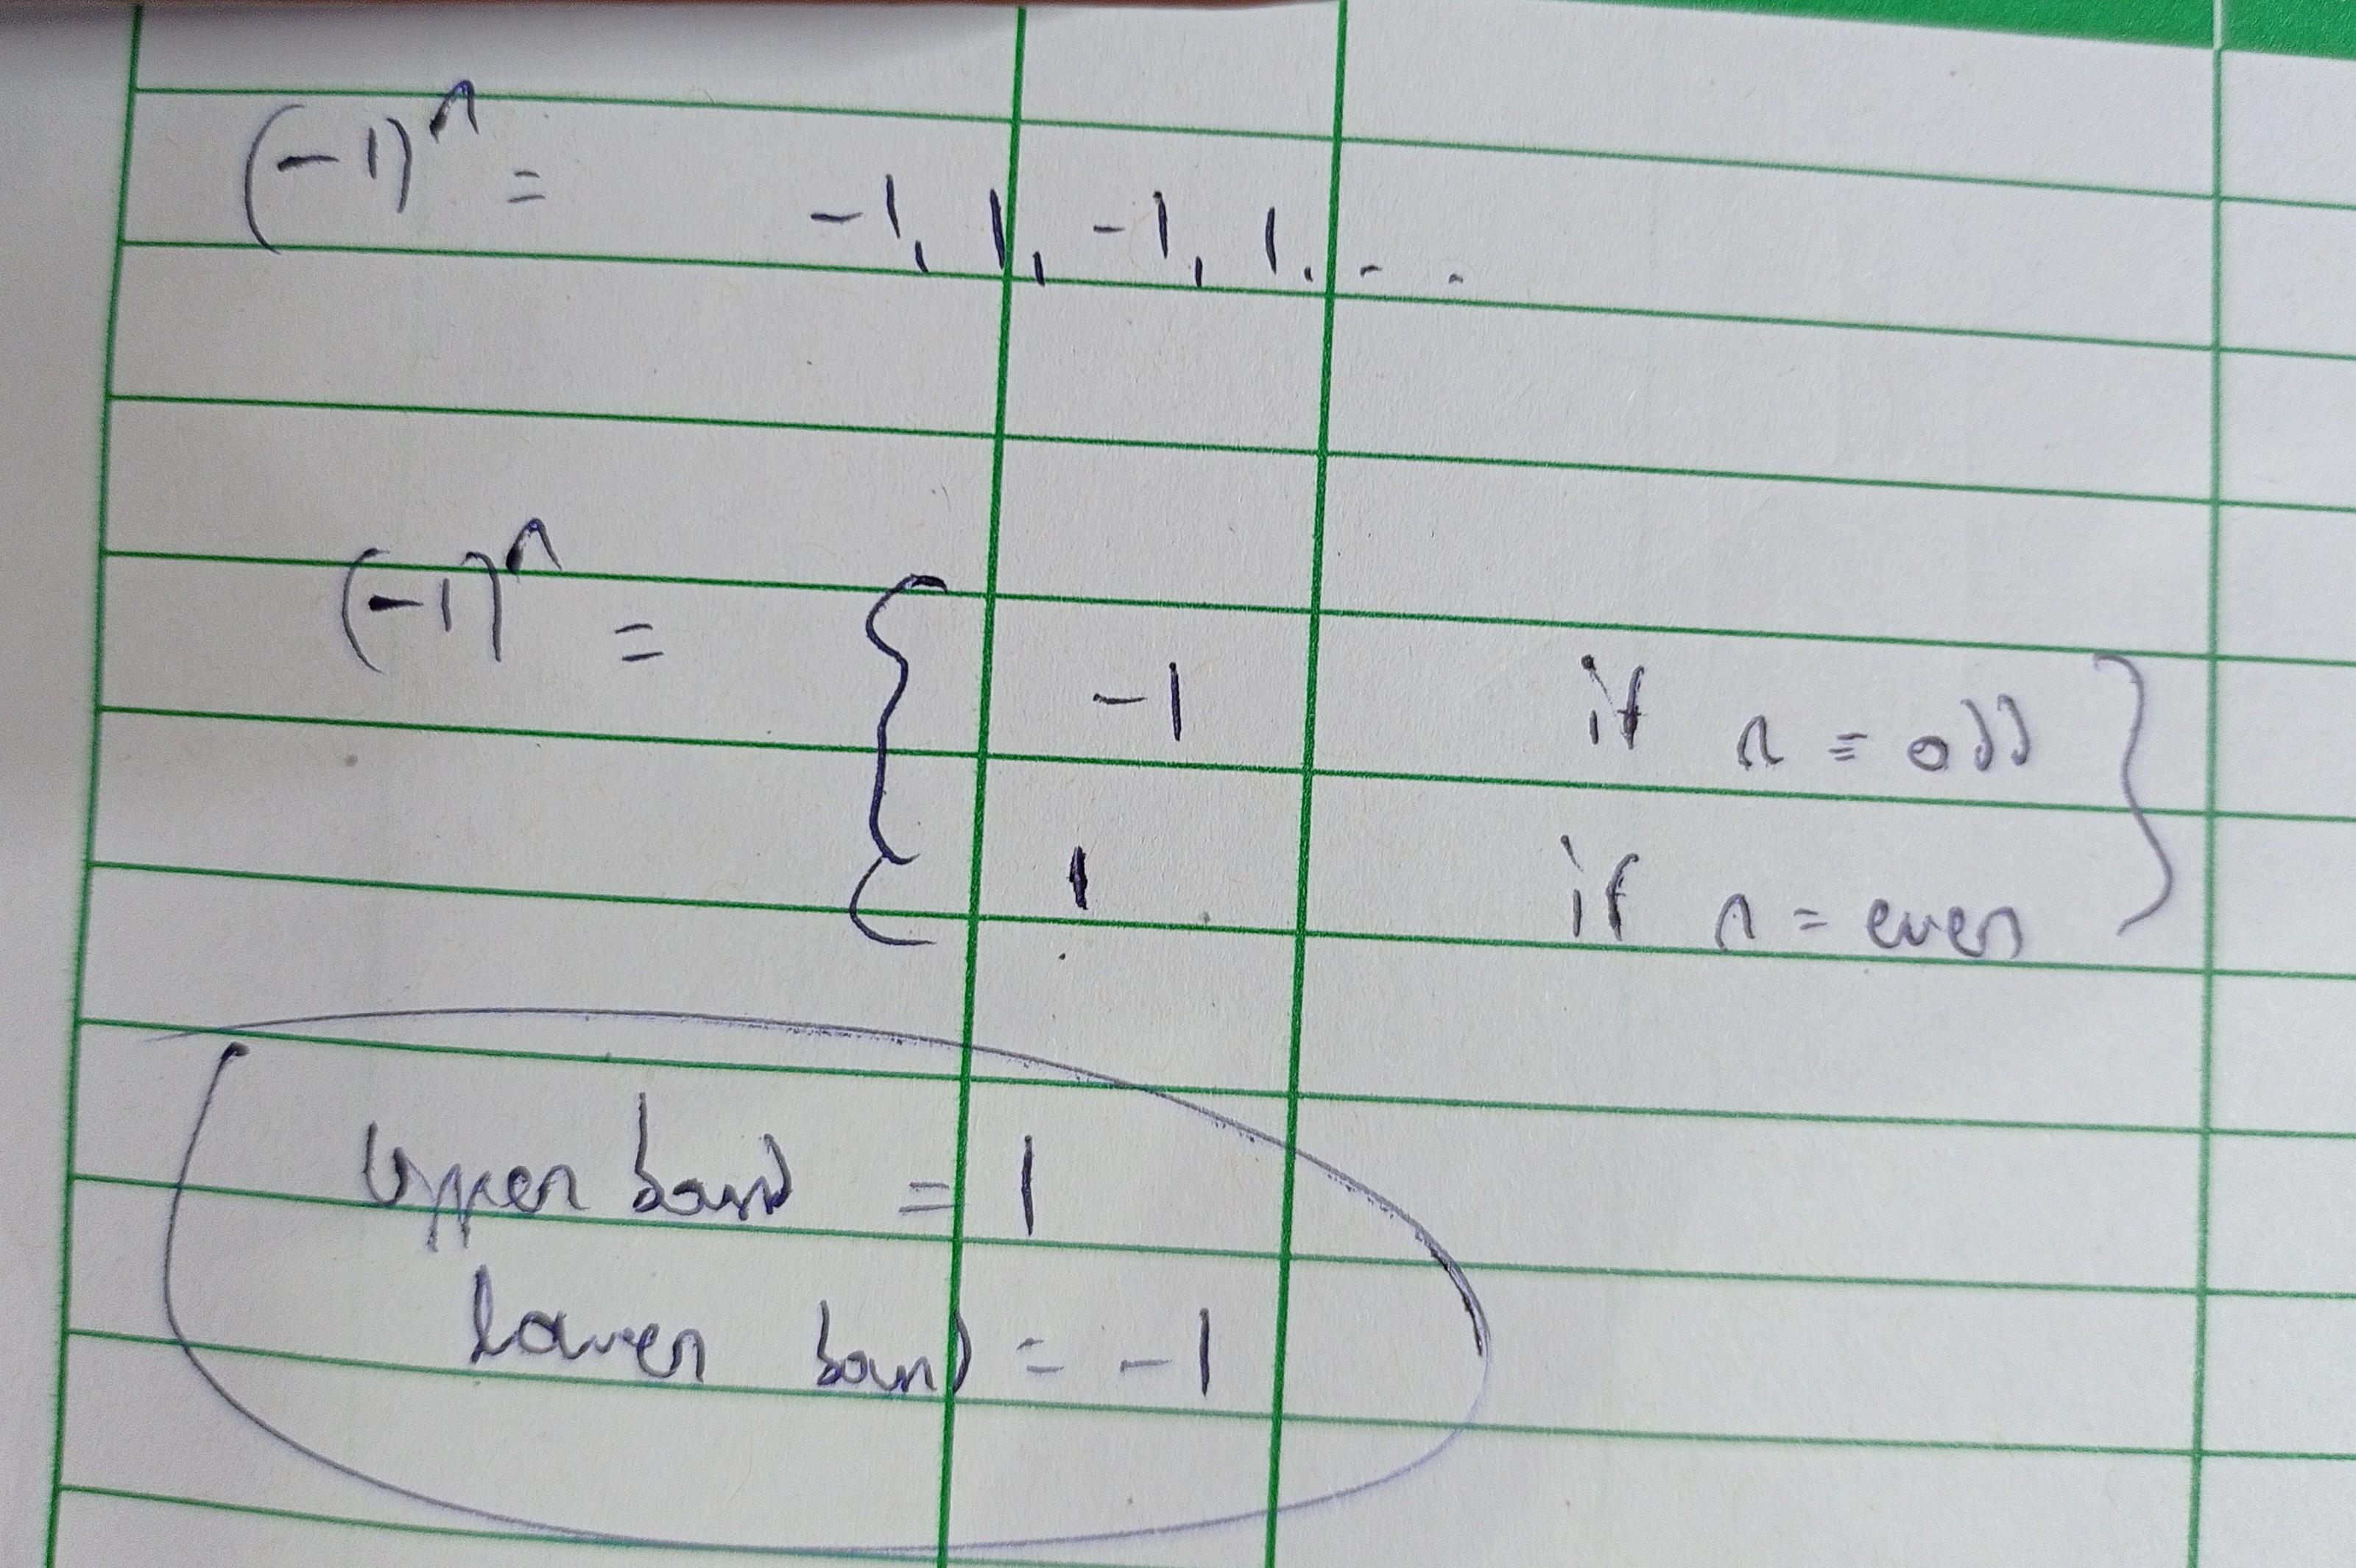 (-1)^n = -1, 1, -1, 1, . . .
(-1)^n = { -1 if n = odd }
1 if n = even
Upper bound = 1
lower bound = -1